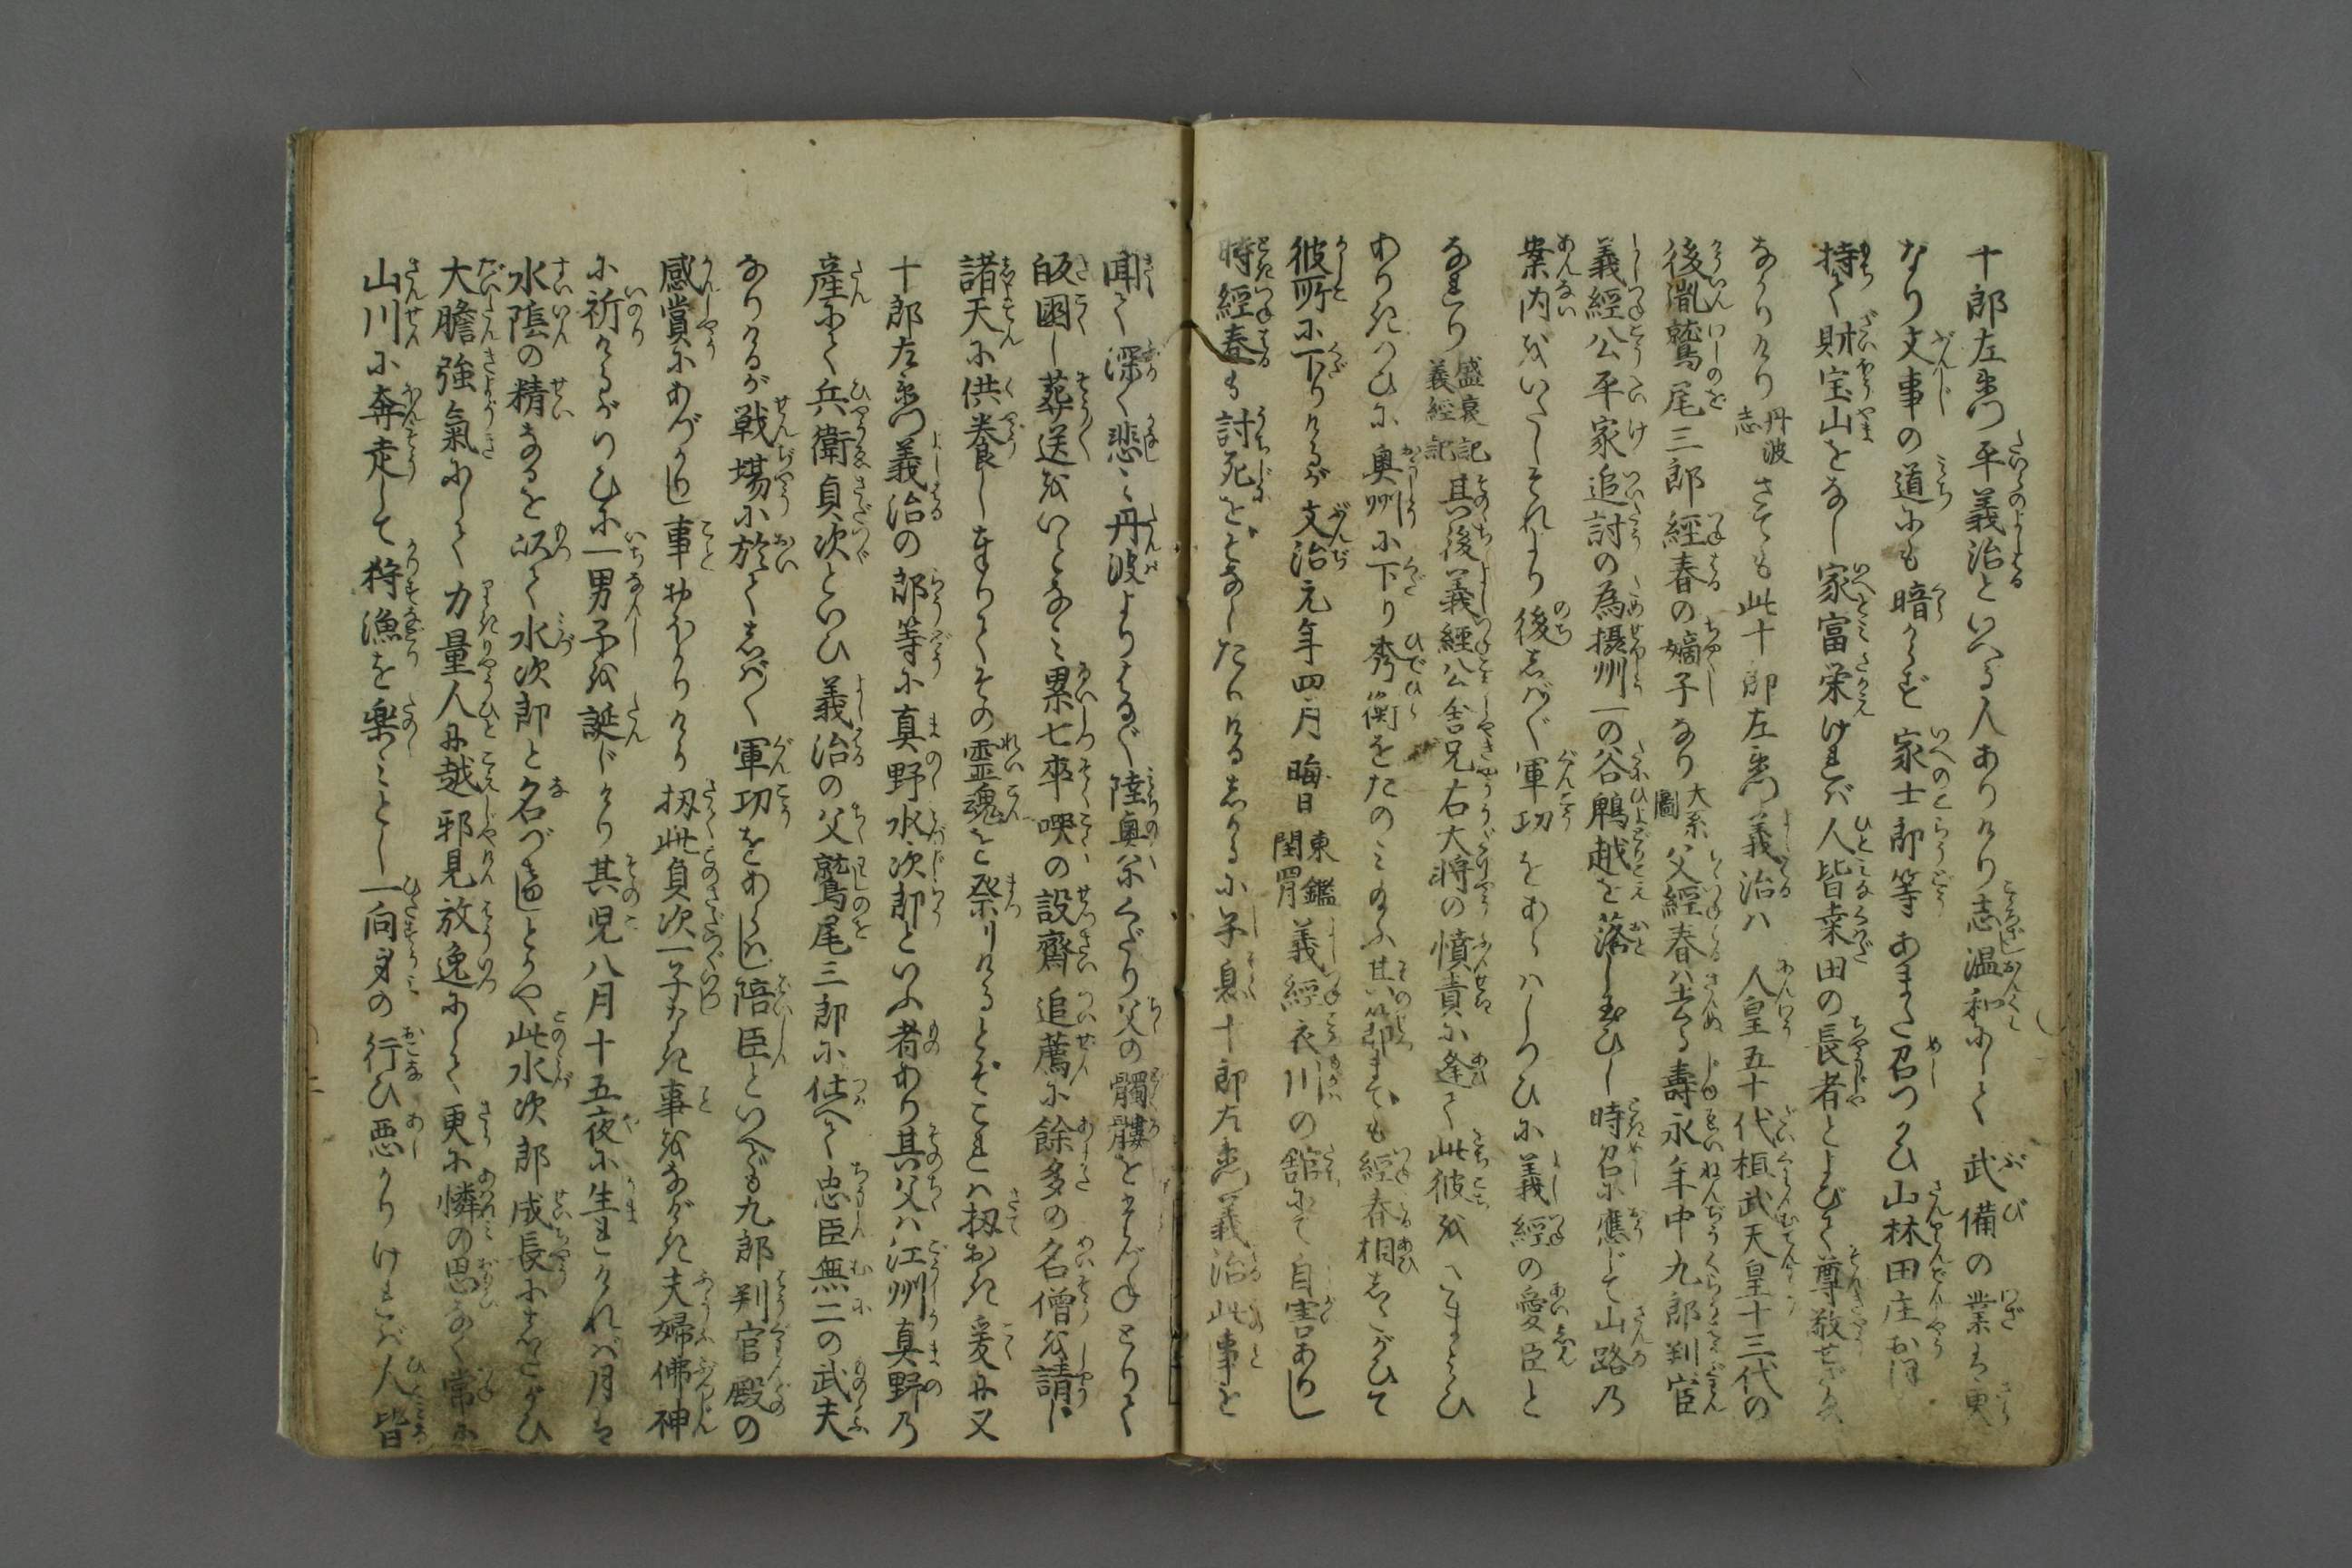 十郎左衛門平義治といへる人ありけり志温和にして武備の業は更
なり文事の道にも暗からず家士郎等あまた召つかひ山林田庄おほ
持て財宝山をなし家富栄けれバ人皆桒田の長者とよびて尊敬せざるハ
なかりけり丹波志さても此十郎左衛門義治ハ人皇五十代桓武天皇十三代の
後胤鷲尾三郎経春の嫡子なり大系圖父經春ハ去る壽永年中九郎判官
義經公平家追討の為摂州一の谷鵯越を落し玉ひし時召に應じて山路乃
案内をいたしそれより後志ば〴〵軍功をあらハしつひに義經の愛臣と
なれり盛衰記義經記其後義經公舎兄右大将の憤責に逢て此彼をさまよひ
ありきつひに奥州に下り秀衡をたのミ給ふ其節までも經春相志たがひて
彼所に下りけるが文治元年四月晦日東鑑閏月義經衣川の舘にて自害ありし
時經春も討死をぞなしたりける志かるに子息十郎左衛門義治此事を
聞て深く悲ミ丹波よりはる〴〵陸奥にくだり父の髑髏をたづねとりて
皈國し葬送をいとなミ累七卒哭の設齋追薦に餘多の名僧を請し
諸天に供養しまゐりてその霊魂を祭りけるとぞこれハ扨おき爰に又
十郎左衛門義治の郎等に真野水次郎といふ者あり其父ハ江州真野乃
産にて兵衛貞次といひ義治の父鷲尾三郎に仕へて忠臣無二の武夫
なりけるが戦場に於て志ば〴〵軍功をあらハし陪臣といへども九郎判官殿の
感賞にあづかりし事おほかりけり扨此貞次一子なき事をなげき夫婦佛神
に祈けるがつひに一男子を誕じけり其児八月十五夜に生れけれバ月は
水陰の精なるを以て水次郎と名づけしとかや此水次郎成長に志たがひ
大膽強氣にして力量人に越邪見放逸にして更に憐の思なく常に
山川に奔走して狩漁を楽ミとし一向身の行ひ悪かりけれバ人皆